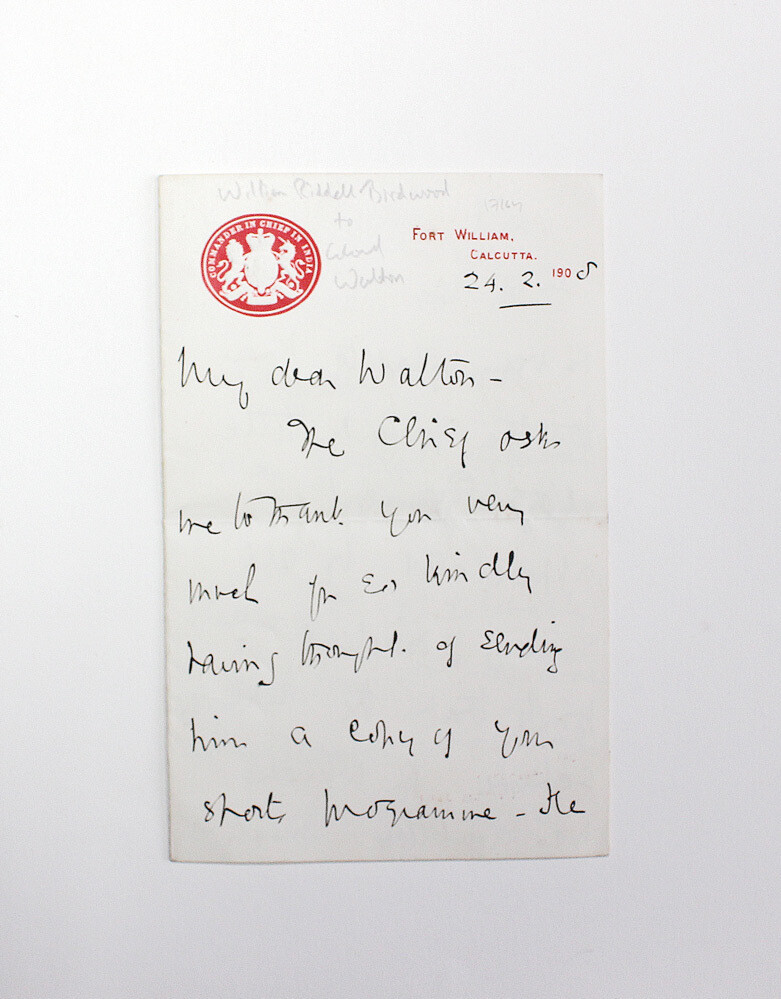 William Riddell Birdwood
to
Colonel
Walton
17164
COMMANDER IN CHIEF IN INDIA
FORT WILLIAM,
CALCUTTA.
24. 2. 1908
My dear Walton –
The Chief asks
me to thank you very
much for so kindly
having thought of sending
him a copy of your
sports programme – He